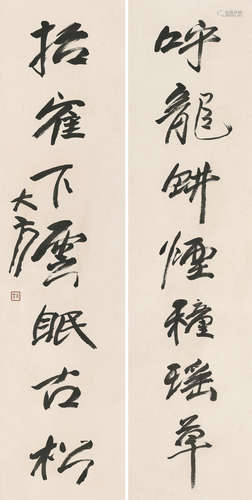 呼龍耕煙種瑶草
招寉下雲眠古松
大方